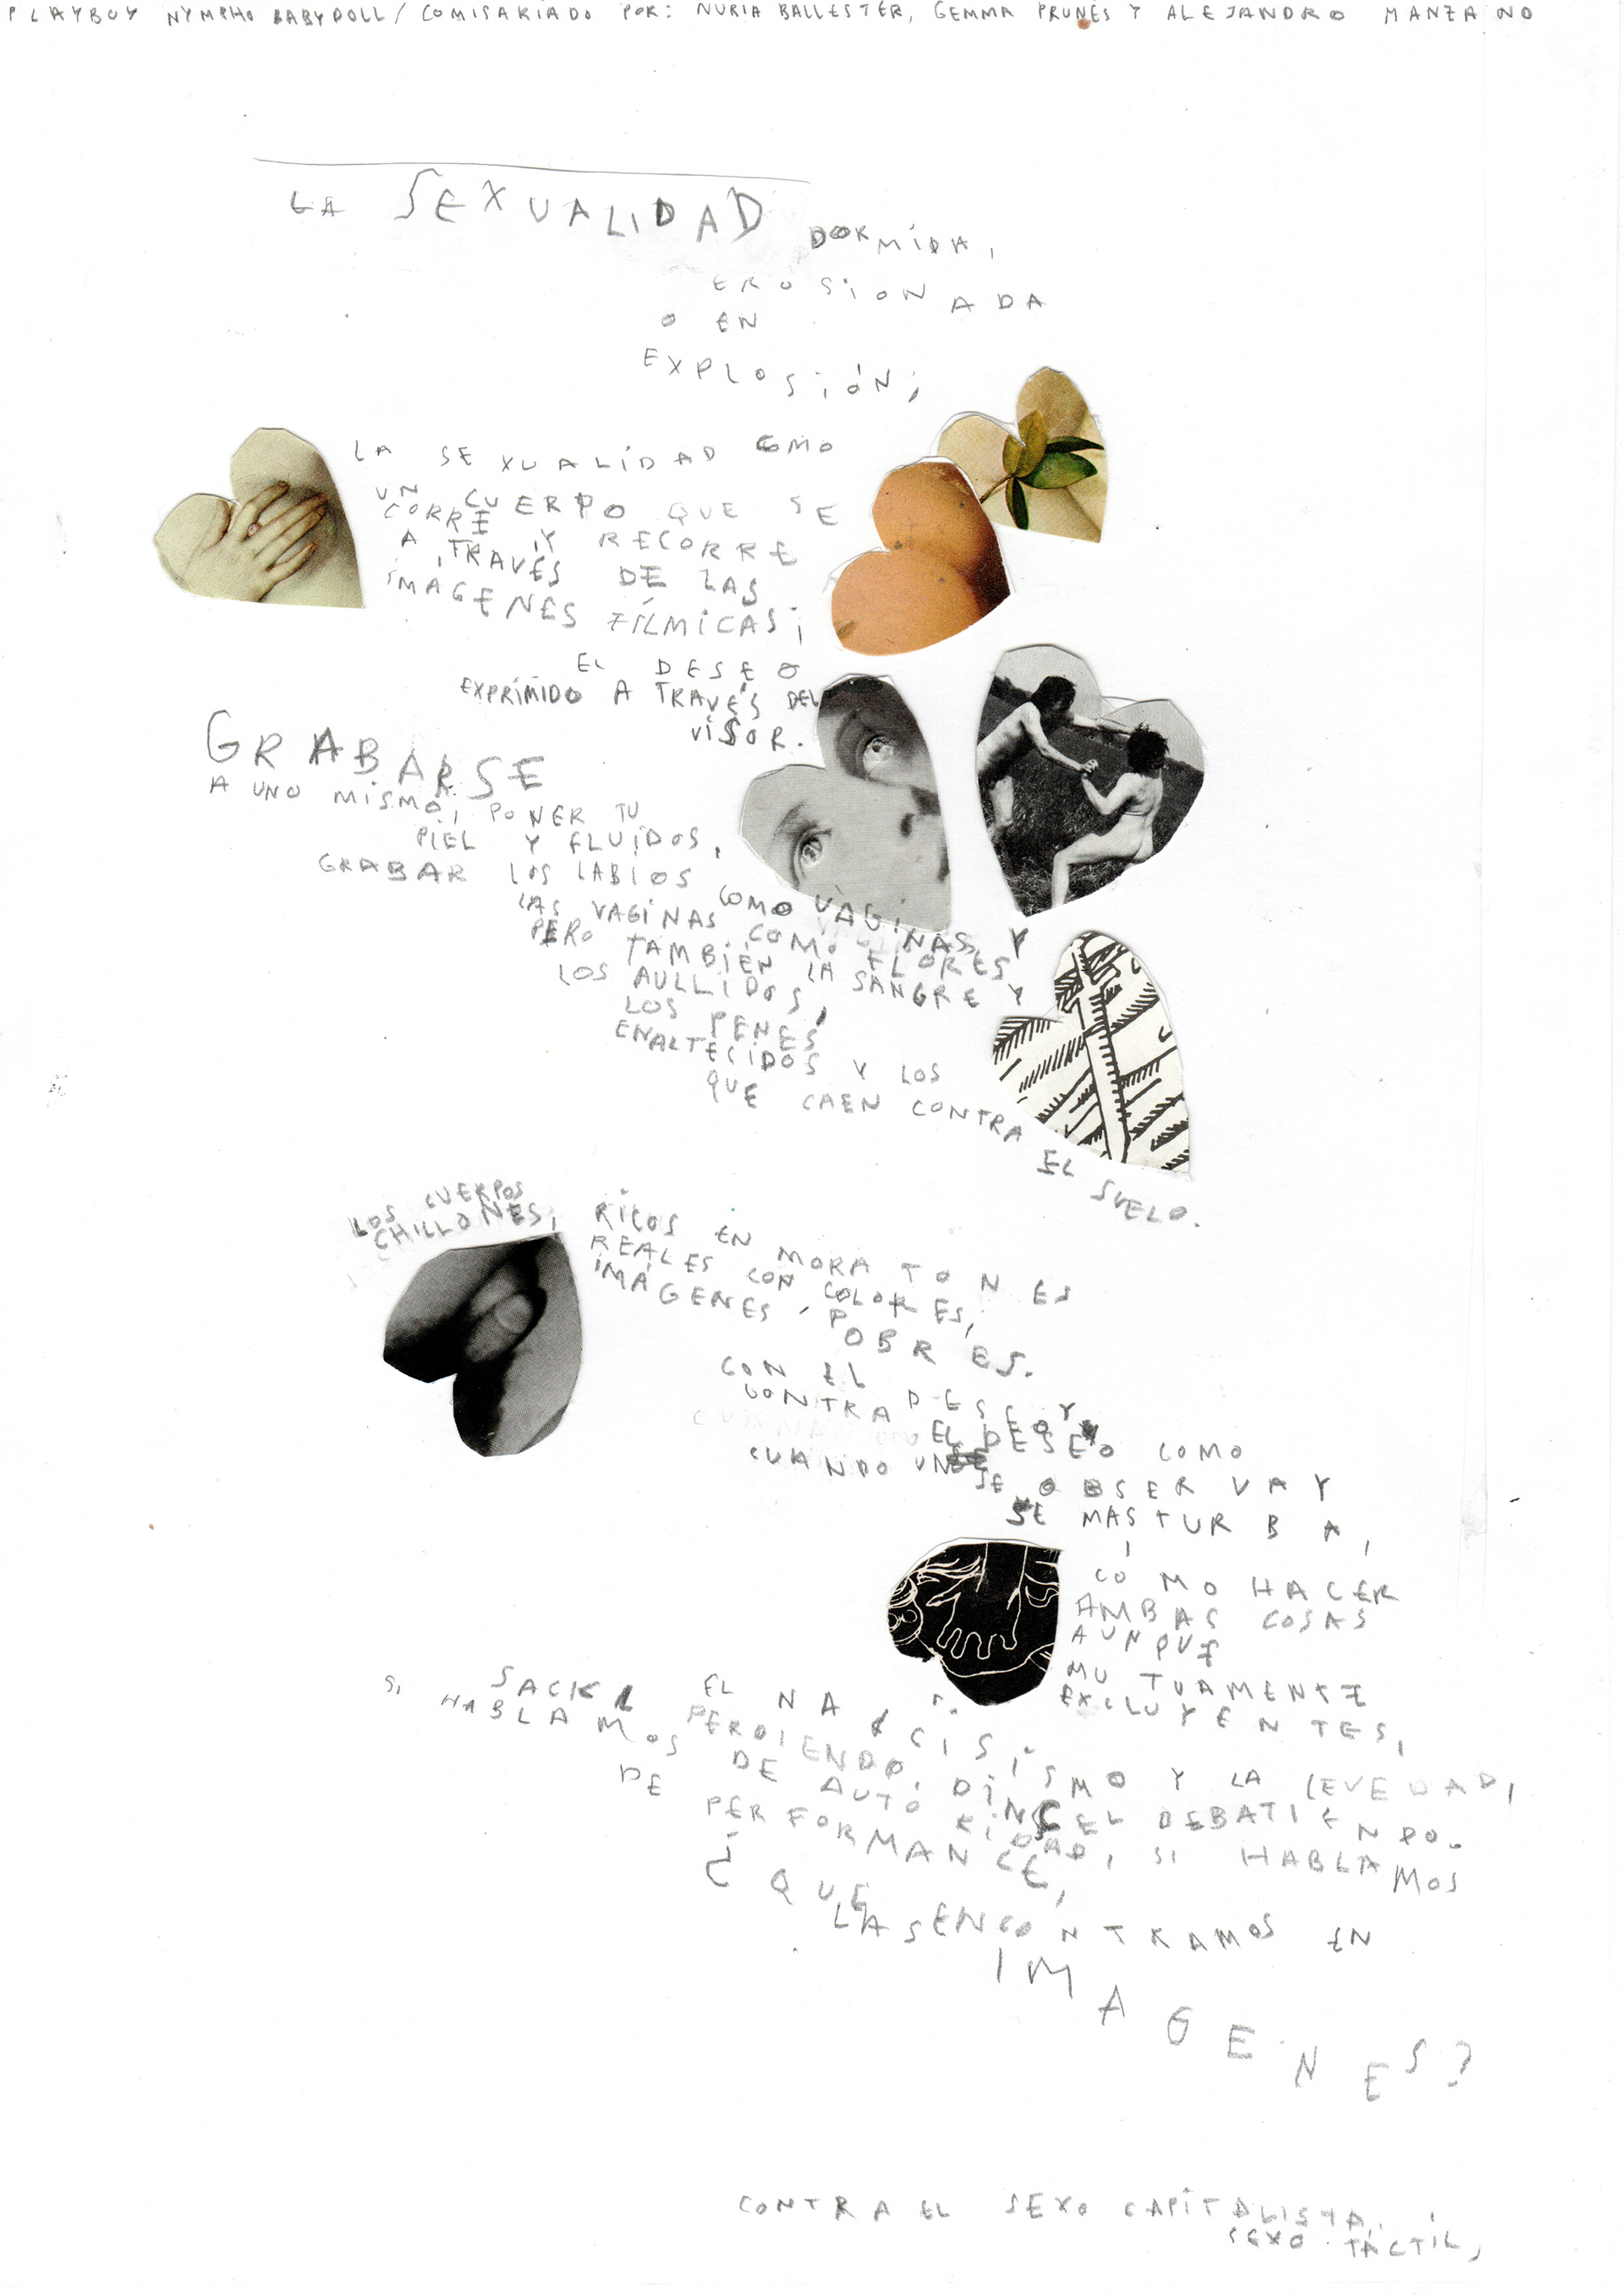 PLAYBOY NYMPHO BABYDOLL / COMISARIADO POR: NURIA BALLESTER, GEMMA PRUNÉS Y ALEJANDRO MANZANO
LA SEXUALIDAD DORMIDA,
EROSIONADA
O EN
EXPLOSIÓN;
LA SEXUALIDAD COMO
UN CUERPO QUE SE
CORRE Y RECORRE
A TRAVÉS DE LAS
IMAGENES FÍLMICAS;
EL DESEO
EXPRIMIDO A TRAVÉS DEL
VISOR.
GRABARSE
A UNO MISMO, PONER TU
PIEL Y FLUIDOS,
GRABAR LOS LABIOS COMO VAGINAS, Y
LAS VAGINAS COMO FLORES,
PERO TAMBIÉN LA SANGRE Y
LOS AULLIDOS,
LOS PENES
ENALTECIDOS Y LOS
QUE CAEN CONTRA
EL SUELO.
LOS CUERPOS
CHILLONES, RICOS EN MORATONES
REALES CON COLORES,
IMÁGENES POBRES.
CON EL
CONTRADESEO Y
EL DESEO COMO
CUANDO UN
SE OBSERVA Y
SE MASTURBA,
CÓMO HACER
AMBAS COSAS
AUNQUE
MUTUAMENTE
EXCLUYENTES,
SACK EL NARCISISMO Y LA LEVEDAD,
PERDIENDO, DINCEL DEBATIENDO.
SI HABLAMOS DE AUTORIDAD, SI HABLAMOS
DE PERFORMANCE,
¿QUÉ
LAS ENCONTRAMOS EN
IMAGENES?
CONTRA EL SEXO CAPITALISTA,
SEXO TÁCTIL,